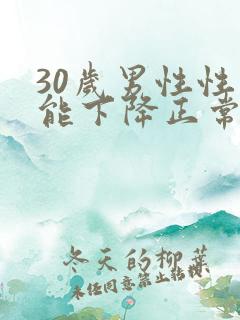 30歲男性性
能下降正常
冬天的柳葉
未经同意禁止转载